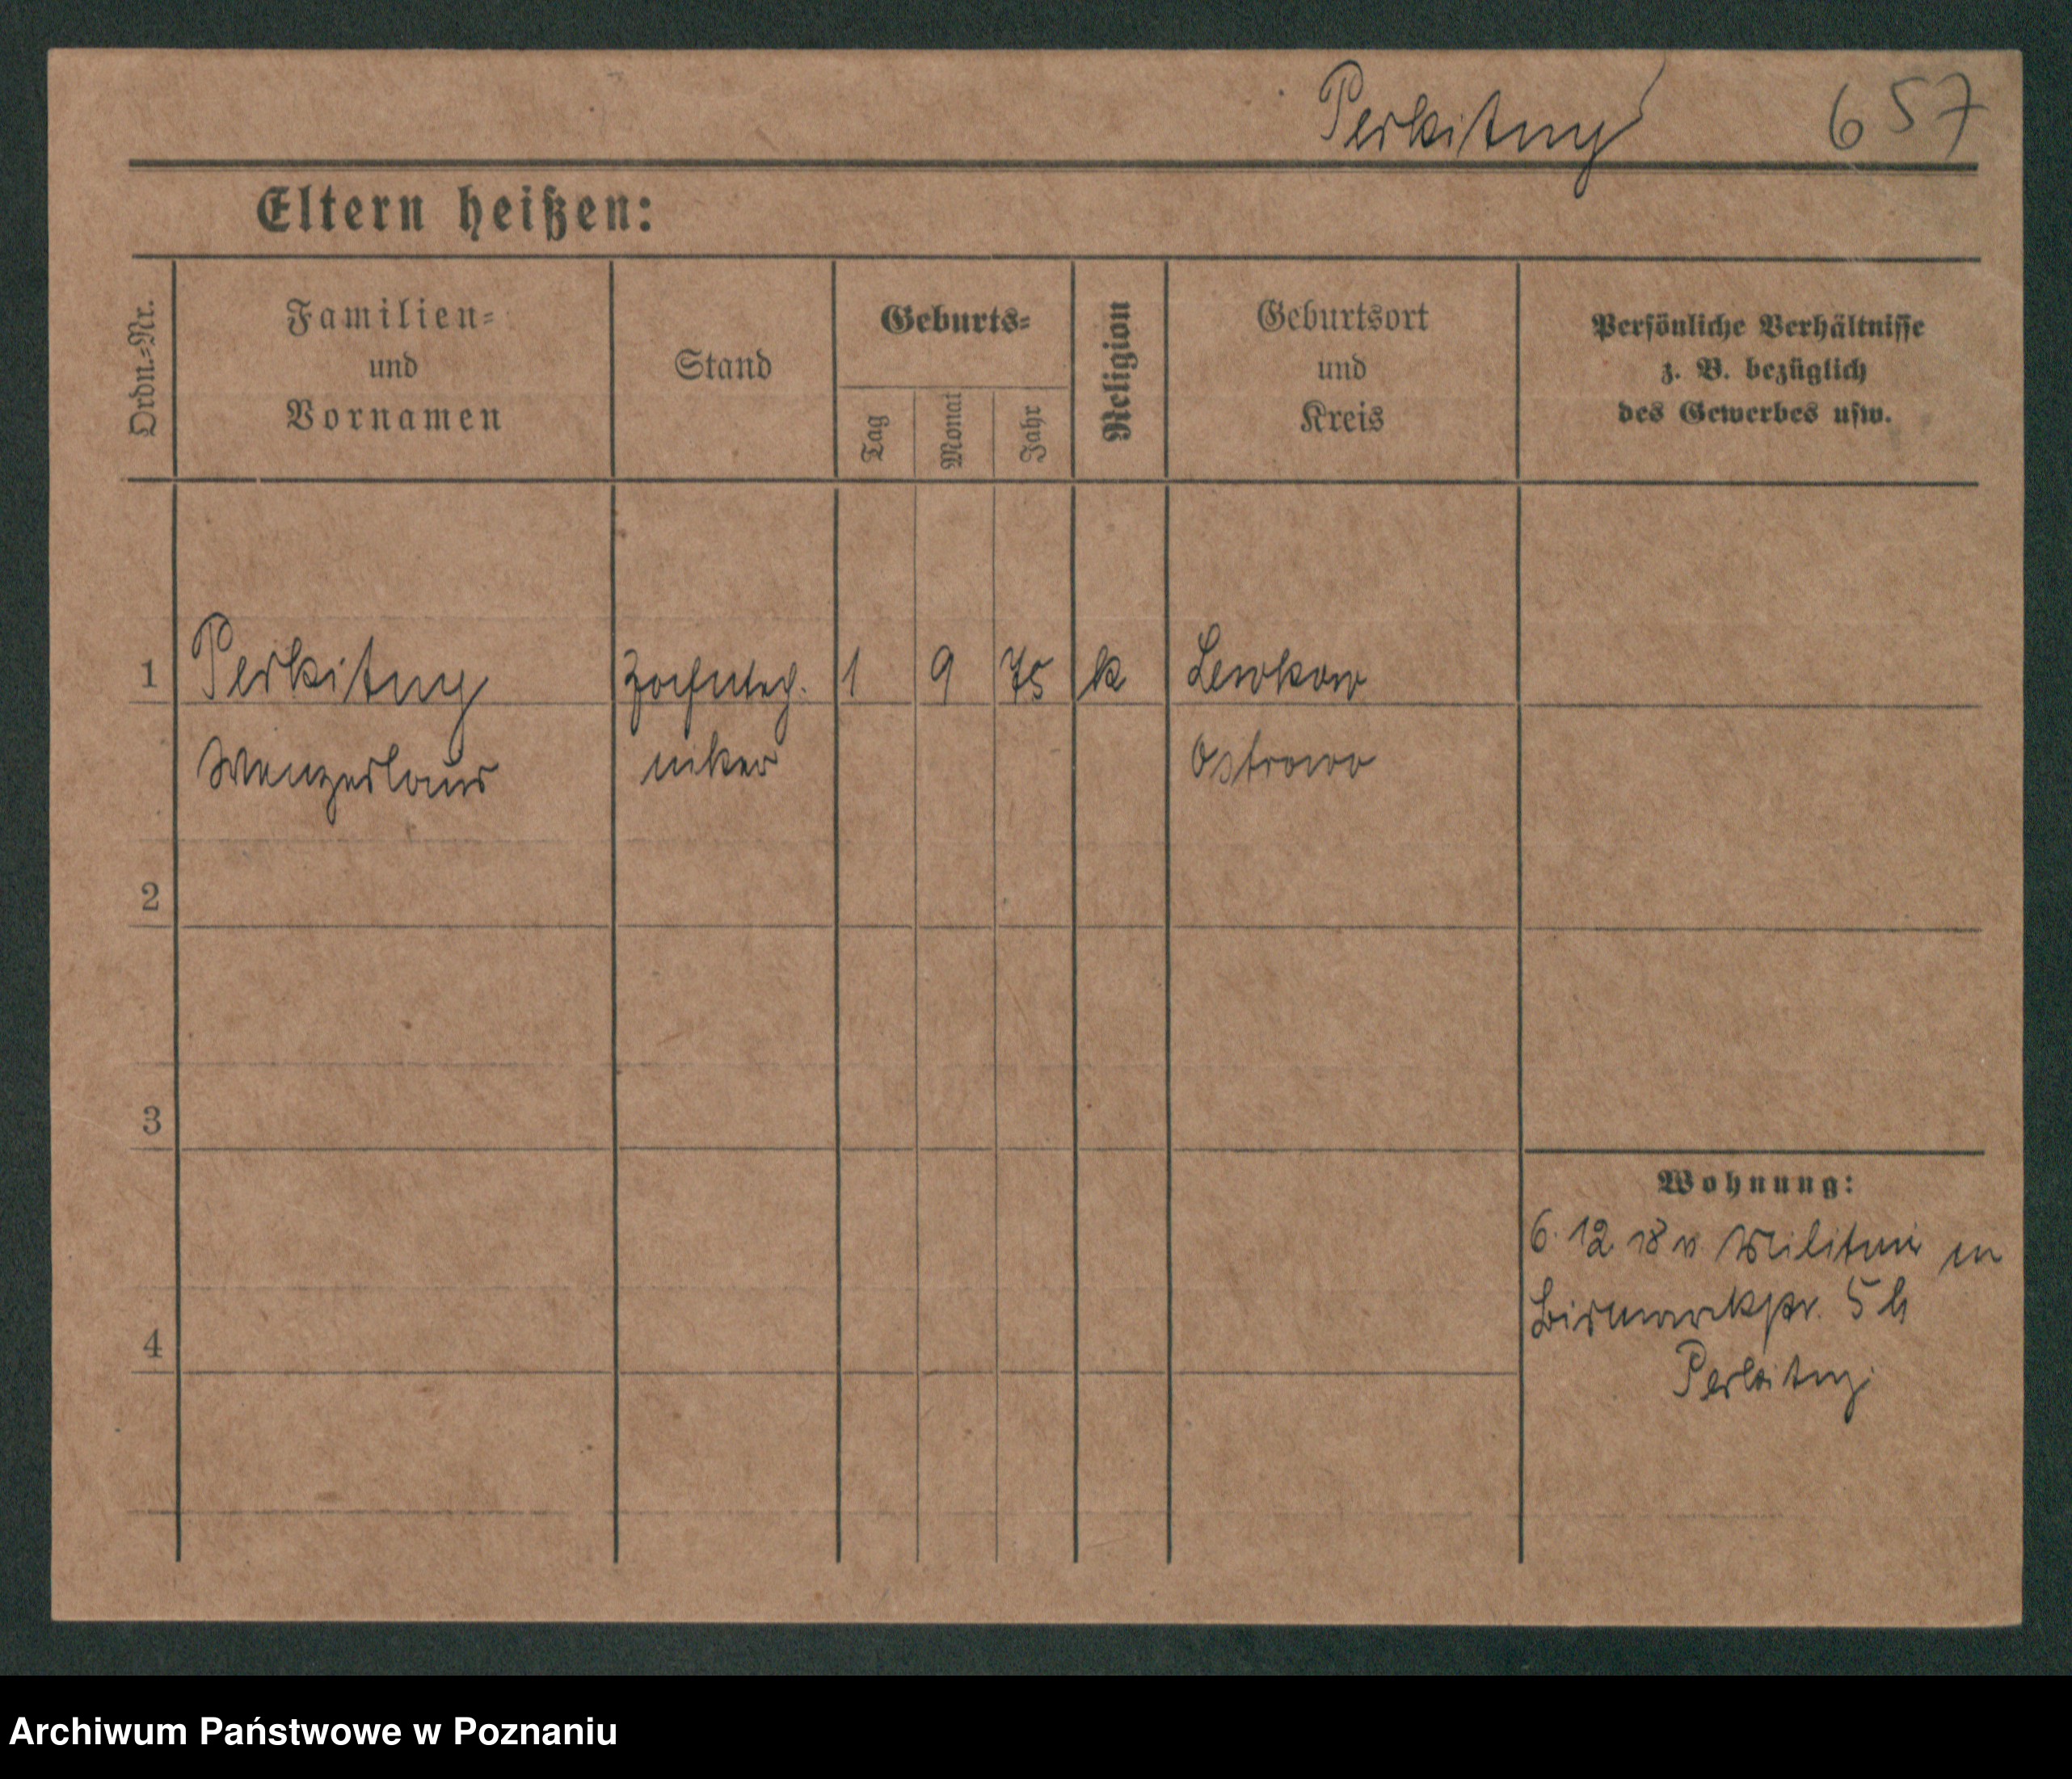 Perkitny 657
Eltern heißen:
Ordn.=Nr.
Familien=
und
Vornamen
Stand
Geburts=
Tag
Monat
Jahr
Religion
Geburtsort
und
Kreis
Persönliche Verhältnisse
z. B. bezüglich
des Gewerbes usw.
1 Perkitny Zahntech. 1 9 75 k Lewkow
Wenzeslaus niker Ostrowo
2
3
4
Wohnung:
6. 12 18 v. Militär in
Bismarckstr. 5 b
Perkitny
Archiwum Państwowe w Poznaniu